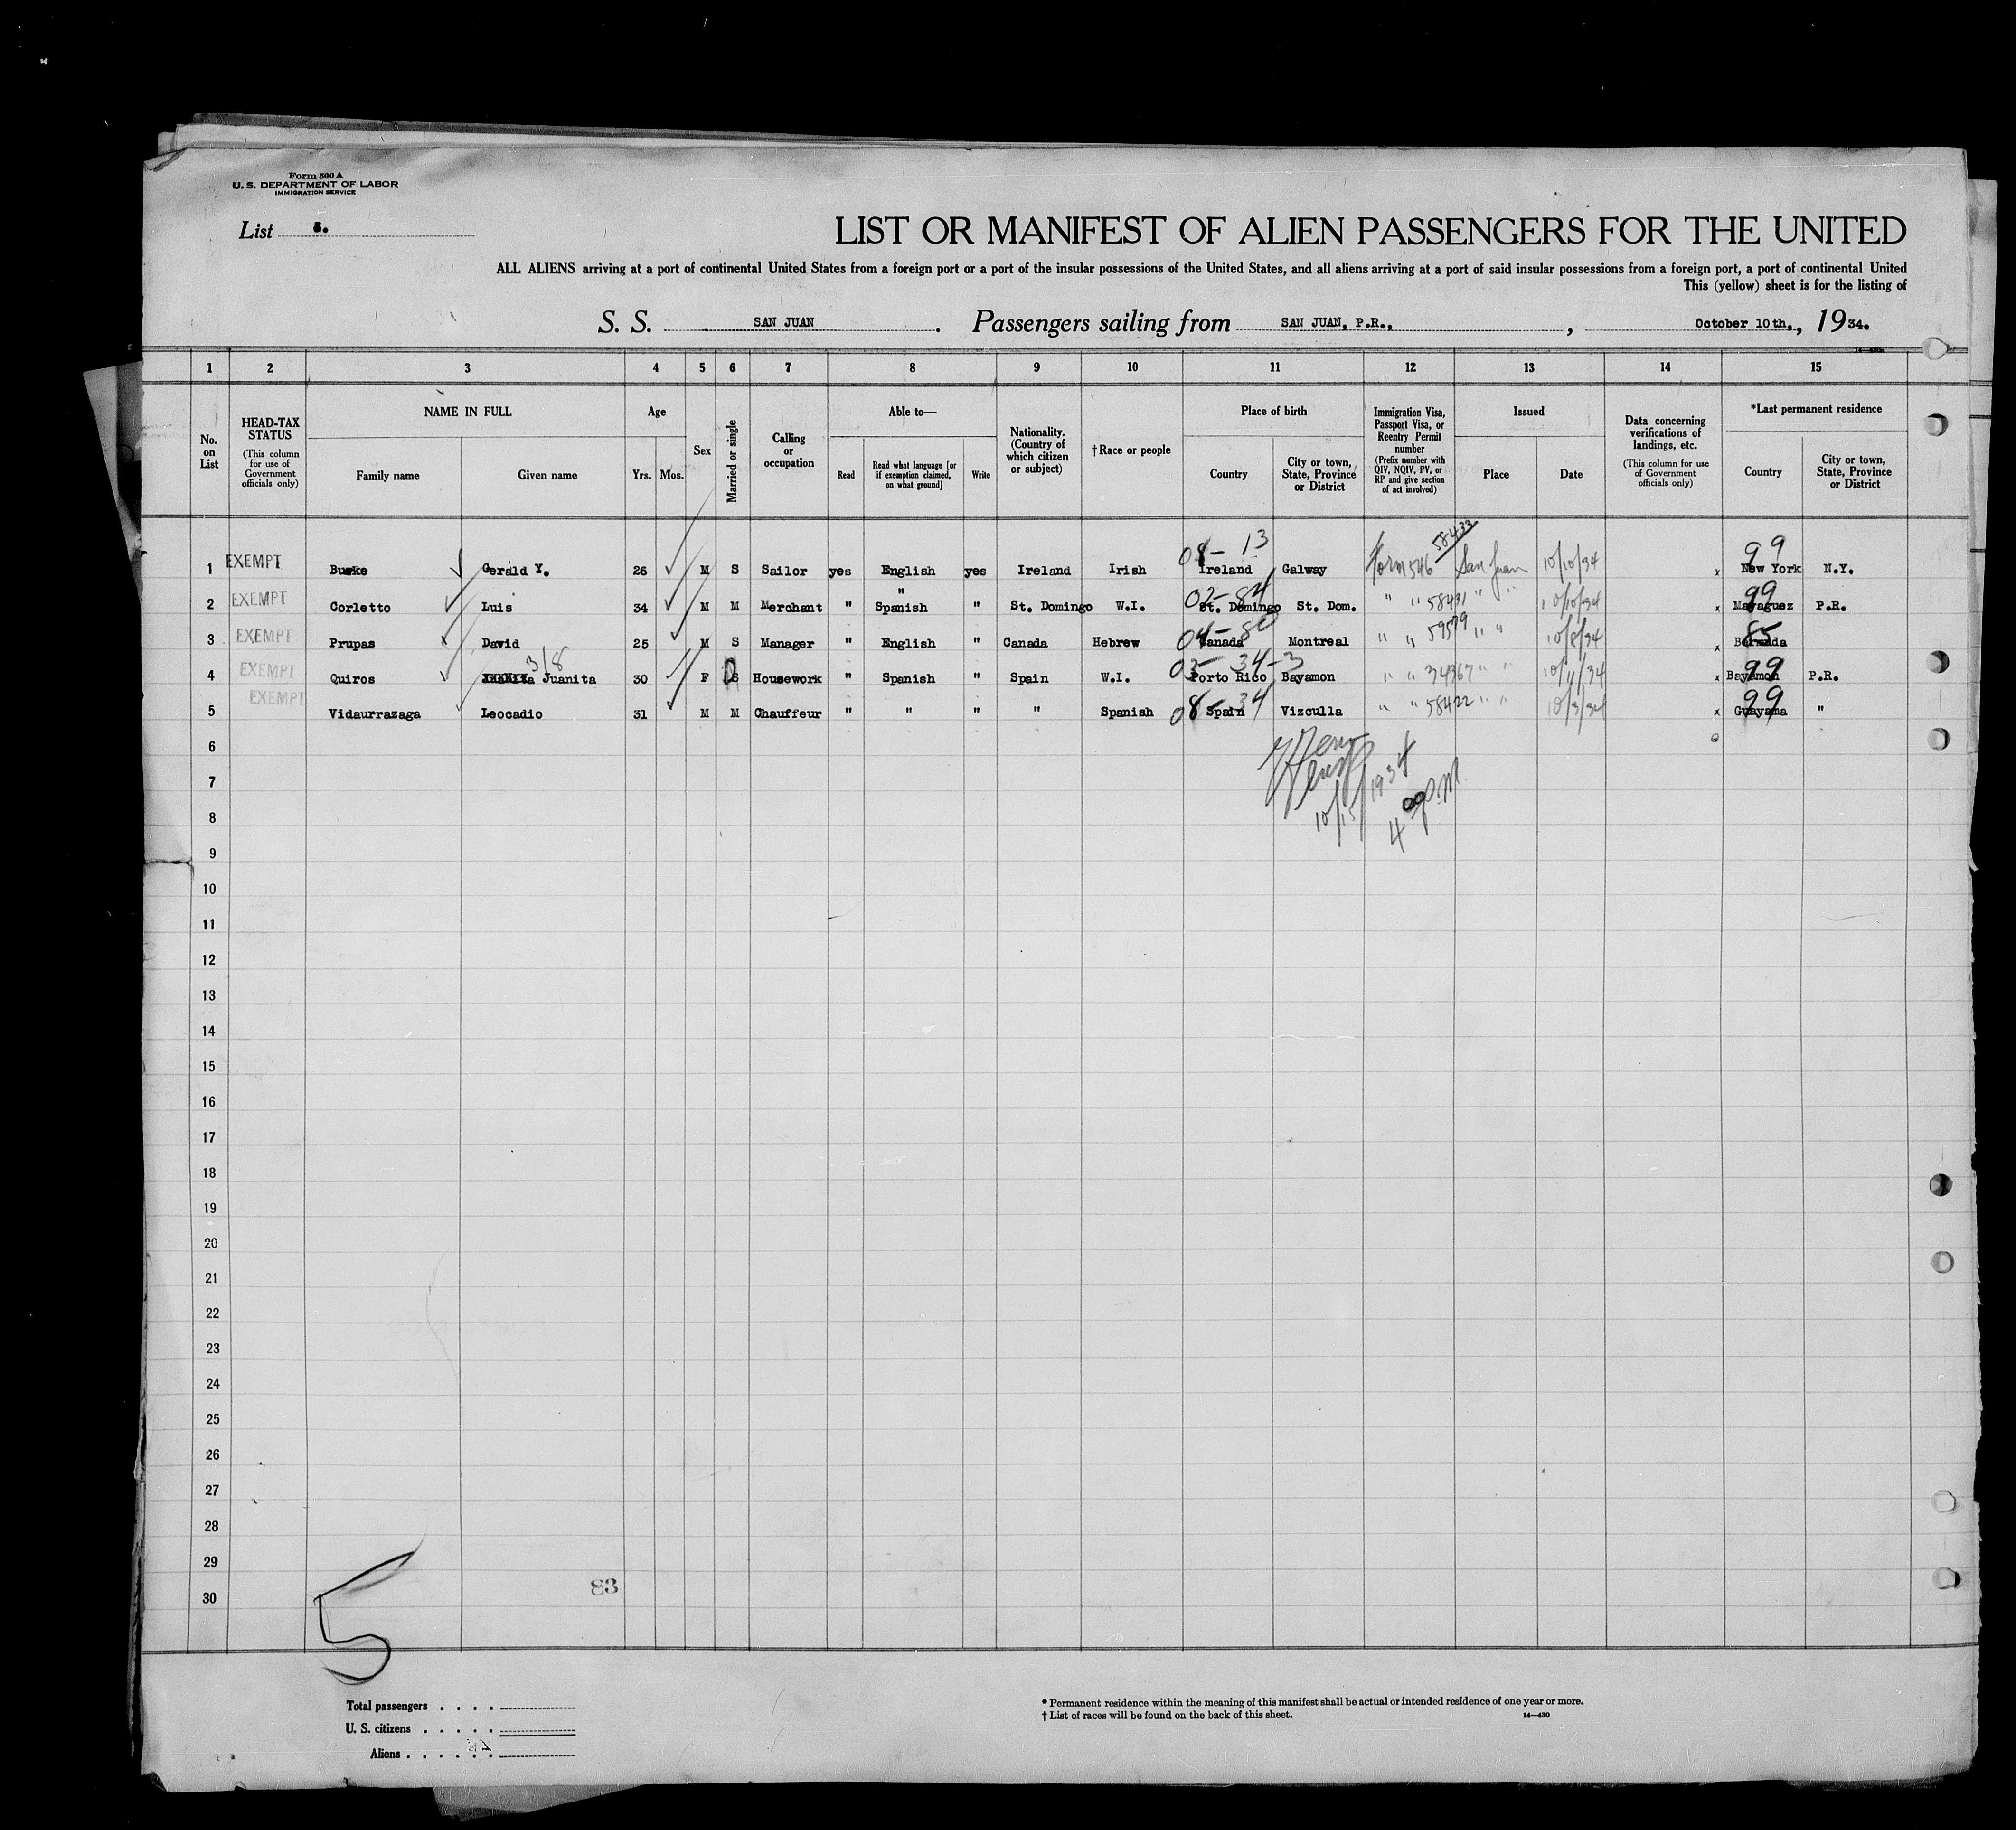 Form 500 A
U. S. DEPARTMENT OF LABOR
IMMIGRATION SERVICE
List 5.
LIST OR MANIFEST OF ALIEN PASSENGERS FOR THE UNITED
ALL ALIENS arriving at a port of continental United States from a foreign port or a port of the insular possessions of the United States, and all aliens arriving at a port of said insular possessions from a foreign port, a port of continental United
This (yellow) sheet is for the listing of
S. S. SAN JUAN . Passengers sailing from SAN JUAN, P.R., , October 10th., , 1934.
1 2 3 4 5 6 7 8 9 10 11 12 13 14 15
No. on List
HEAD-TAX STATUS
(This column for use of Government officials only)
NAME IN FULL
Family name
Given name
Age
Yrs.
Mos.
Sex
Married or single
Calling or occupation
Able to—
Read
Read what language [or if exemption claimed, on what ground]
Write
Nationality. (Country of which citizen or subject)
† Race or people
Place of birth
Country
City or town, State, Province or District
Immigration Visa, Passport Visa, or Reentry Permit number
(Prefix number with QIV, NQIV, PV, or RP and give section of act involved)
Issued
Place
Date
Data concerning verifications of landings, etc.
(This column for use of Government officials only)
*Last permanent residence
Country
City or town, State, Province or District
08- 13 58433 99
1 EXEMPT Burke Gerald Y. 26 M S Sailor yes English yes Ireland Irish Ireland Galway Form 546 San Juan 10/10/34 x New York N.Y.
"
02-84 99
2 EXEMPT Corletto Luis 34 M M Merchant " Spanish " St. Domingo W.I. St. Domingo St. Dom. " " 58431 " " 10/10/34 x Mayaguez P.R.
04-80 85
3 EXEMPT Prupas David 25 M S Manager " English " Canada Hebrew Canada Montreal " " 59579 " " 10/8/34 x Bermuda
3/8 03-34-3 99
4 EXEMPT Quiros Juanita 30 F D Housework " Spanish " Spain W.I. Porto Rico Bayamon " " 34367 " " 10/11/34 x Bayamon P.R.
08-34 99
5 EXEMPT Vidaurrazaga Leocadio 31 M M Chauffeur " " " " Spanish Spain Vizculla " " 58422 " " 10/3/34 x Guayama "
6
7
10/15/1934
8
4 00 P.M.
9
10
11
12
13
14
15
16
17
18
19
20
21
22
23
24
25
26
27
28
29
83
30
5
Total passengers . . . .
U. S. citizens . . . . .
Aliens . . . . . .
* Permanent residence within the meaning of this manifest shall be actual or intended residence of one year or more.
† List of races will be found on the back of this sheet.
14—430